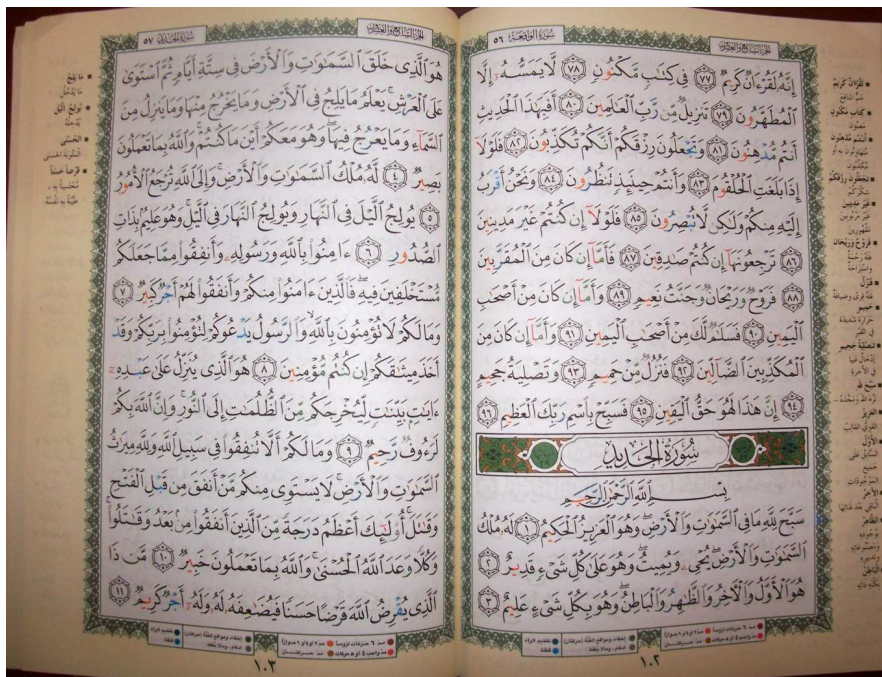 الجزء السابع والعشرون
سورة الواقعة ٥٦
إِنَّهُۥ لَقُرْءَانٌ كَرِيمٌ ٧٧ فِى كِتَٰبٍ مَّكْنُونٍ ٧٨ لَّا يَمَسُّهُۥٓ إِلَّا
ٱلْمُطَهَّرُونَ ٧٩ تَنزِيلٌ مِّن رَّبِّ ٱلْعَٰلَمِينَ ٨٠ أَفَبِهَٰذَا ٱلْحَدِيثِ
أَنتُم مُّدْهِنُونَ ٨١ وَتَجْعَلُونَ رِزْقَكُمْ أَنَّكُمْ تُكَذِّبُونَ ٨٢ فَلَوْلَآ
إِذَا بَلَغَتِ ٱلْحُلْقُومَ ٨٣ وَأَنتُمْ حِينَئِذٍ تَنظُرُونَ ٨٤ وَنَحْنُ أَقْرَبُ
إِلَيْهِ مِنكُمْ وَلَٰكِن لَّا تُبْصِرُونَ ٨٥ فَلَوْلَآ إِن كُنتُمْ غَيْرَ مَدِينِينَ
٨٦ تَرْجِعُونَهَآ إِن كُنتُمْ صَٰدِقِينَ ٨٧ فَأَمَّآ إِن كَانَ مِنَ ٱلْمُقَرَّبِينَ
٨٨ فَرَوْحٌ وَرَيْحَانٌ وَجَنَّتُ نَعِيمٍ ٨٩ وَأَمَّآ إِن كَانَ مِنْ أَصْحَٰبِ
ٱلْيَمِينِ ٩٠ فَسَلَٰمٌ لَّكَ مِنْ أَصْحَٰبِ ٱلْيَمِينِ ٩١ وَأَمَّآ إِن كَانَ مِنَ
ٱلْمُكَذِّبِينَ ٱلضَّآلِّينَ ٩٢ فَنُزُلٌ مِّنْ حَمِيمٍ ٩٣ وَتَصْلِيَةُ جَحِيمٍ
٩٤ إِنَّ هَٰذَا لَهُوَ حَقُّ ٱلْيَقِينِ ٩٥ فَسَبِّحْ بِٱسْمِ رَبِّكَ ٱلْعَظِيمِ ٩٦
سُورَةُ الحَدِيدِ
بِسْمِ ٱللَّهِ ٱلرَّحْمَٰنِ ٱلرَّحِيمِ
سَبَّحَ لِلَّهِ مَا فِى ٱلسَّمَٰوَٰتِ وَٱلْأَرْضِ ۖ وَهُوَ ٱلْعَزِيزُ ٱلْحَكِيمُ ١ لَهُۥ مُلْكُ
ٱلسَّمَٰوَٰتِ وَٱلْأَرْضِ ۖ يُحْىِۦ وَيُمِيتُ ۖ وَهُوَ عَلَىٰ كُلِّ شَىْءٍ قَدِيرٌ ٢
هُوَ ٱلْأَوَّلُ وَٱلْءَاخِرُ وَٱلظَّٰهِرُ وَٱلْبَاطِنُ ۖ وَهُوَ بِكُلِّ شَىْءٍ عَلِيمٌ ٣
لَقُرْءَانٌ كَرِيمٌ
كِتَابٍ مَكْنُونٍ
أَنتُم مُدْهِنُونَ
تَجْعَلُونَ رِزْقَكُمْ
غَيْرَ مَدِينِينَ
فَرَوْحٌ وَرَيْحَانٌ
فَنُزُلٌ
حَمِيمٍ
تَصْلِيَةُ جَحِيمٍ
سَبَّحَ لِلَّهِ
العَزِيزُ
الأَوَّلُ
الآخِرُ
الظَّاهِرُ
البَاطِنُ
١٠٢
الجزء السابع والعشرون
سورة الحديد ٥٧
هُوَ ٱلَّذِى خَلَقَ ٱلسَّمَٰوَٰتِ وَٱلْأَرْضَ فِى سِتَّةِ أَيَّامٍ ثُمَّ ٱسْتَوَىٰ
عَلَى ٱلْعَرْشِ ۚ يَعْلَمُ مَا يَلِجُ فِى ٱلْأَرْضِ وَمَا يَخْرُجُ مِنْهَا وَمَا يَنزِلُ مِنَ
ٱلسَّمَآءِ وَمَا يَعْرُجُ فِيهَا ۖ وَهُوَ مَعَكُمْ أَيْنَ مَا كُنتُمْ ۚ وَٱللَّهُ بِمَا تَعْمَلُونَ
بَصِيرٌ ٤ لَّهُۥ مُلْكُ ٱلسَّمَٰوَٰتِ وَٱلْأَرْضِ ۚ وَإِلَى ٱللَّهِ تُرْجَعُ ٱلْأُمُورُ
٥ يُولِجُ ٱلَّيْلَ فِى ٱلنَّهَارِ وَيُولِجُ ٱلنَّهَارَ فِى ٱلَّيْلِ ۚ وَهُوَ عَلِيمٌۢ بِذَاتِ
ٱلصُّدُورِ ٦ ءَامِنُوا۟ بِٱللَّهِ وَرَسُولِهِۦ وَأَنفِقُوا۟ مِمَّا جَعَلَكُم
مُّسْتَخْلَفِينَ فِيهِ ۖ فَٱلَّذِينَ ءَامَنُوا۟ مِنكُمْ وَأَنفَقُوا۟ لَهُمْ أَجْرٌ كَبِيرٌ ٧
وَمَا لَكُمْ لَا تُؤْمِنُونَ بِٱللَّهِ ۙ وَٱلرَّسُولُ يَدْعُوكُمْ لِتُؤْمِنُوا۟ بِرَبِّكُمْ وَقَدْ
أَخَذَ مِيثَٰقَكُمْ إِن كُنتُم مُّؤْمِنِينَ ٨ هُوَ ٱلَّذِى يُنَزِّلُ عَلَىٰ عَبْدِهِۦٓ
ءَايَٰتٍۭ بَيِّنَٰتٍ لِّيُخْرِجَكُم مِّنَ ٱلظُّلُمَٰتِ إِلَى ٱلنُّورِ ۚ وَإِنَّ ٱللَّهَ بِكُمْ
لَرَءُوفٌ رَّحِيمٌ ٩ وَمَا لَكُمْ أَلَّا تُنفِقُوا۟ فِى سَبِيلِ ٱللَّهِ وَلِلَّهِ مِيرَٰثُ
ٱلسَّمَٰوَٰتِ وَٱلْأَرْضِ ۚ لَا يَسْتَوِى مِنكُم مَّنْ أَنفَقَ مِن قَبْلِ ٱلْفَتْحِ
وَقَٰتَلَ ۚ أُو۟لَٰٓئِكَ أَعْظَمُ دَرَجَةً مِّنَ ٱلَّذِينَ أَنفَقُوا۟ مِنۢ بَعْدُ وَقَٰتَلُوا۟ ۚ
وَكُلًّا وَعَدَ ٱللَّهُ ٱلْحُسْنَىٰ ۚ وَٱللَّهُ بِمَا تَعْمَلُونَ خَبِيرٌ ١٠ مَّن ذَا
ٱلَّذِى يُقْرِضُ ٱللَّهَ قَرْضًا حَسَنًا فَيُضَٰعِفَهُۥ لَهُۥ وَلَهُۥٓ أَجْرٌ كَرِيمٌ ١١
مَا يَلِجُ
يُولِجُ الَّيْلَ
الحُسْنَى
قَرْضًا حَسَنًا
١٠٣